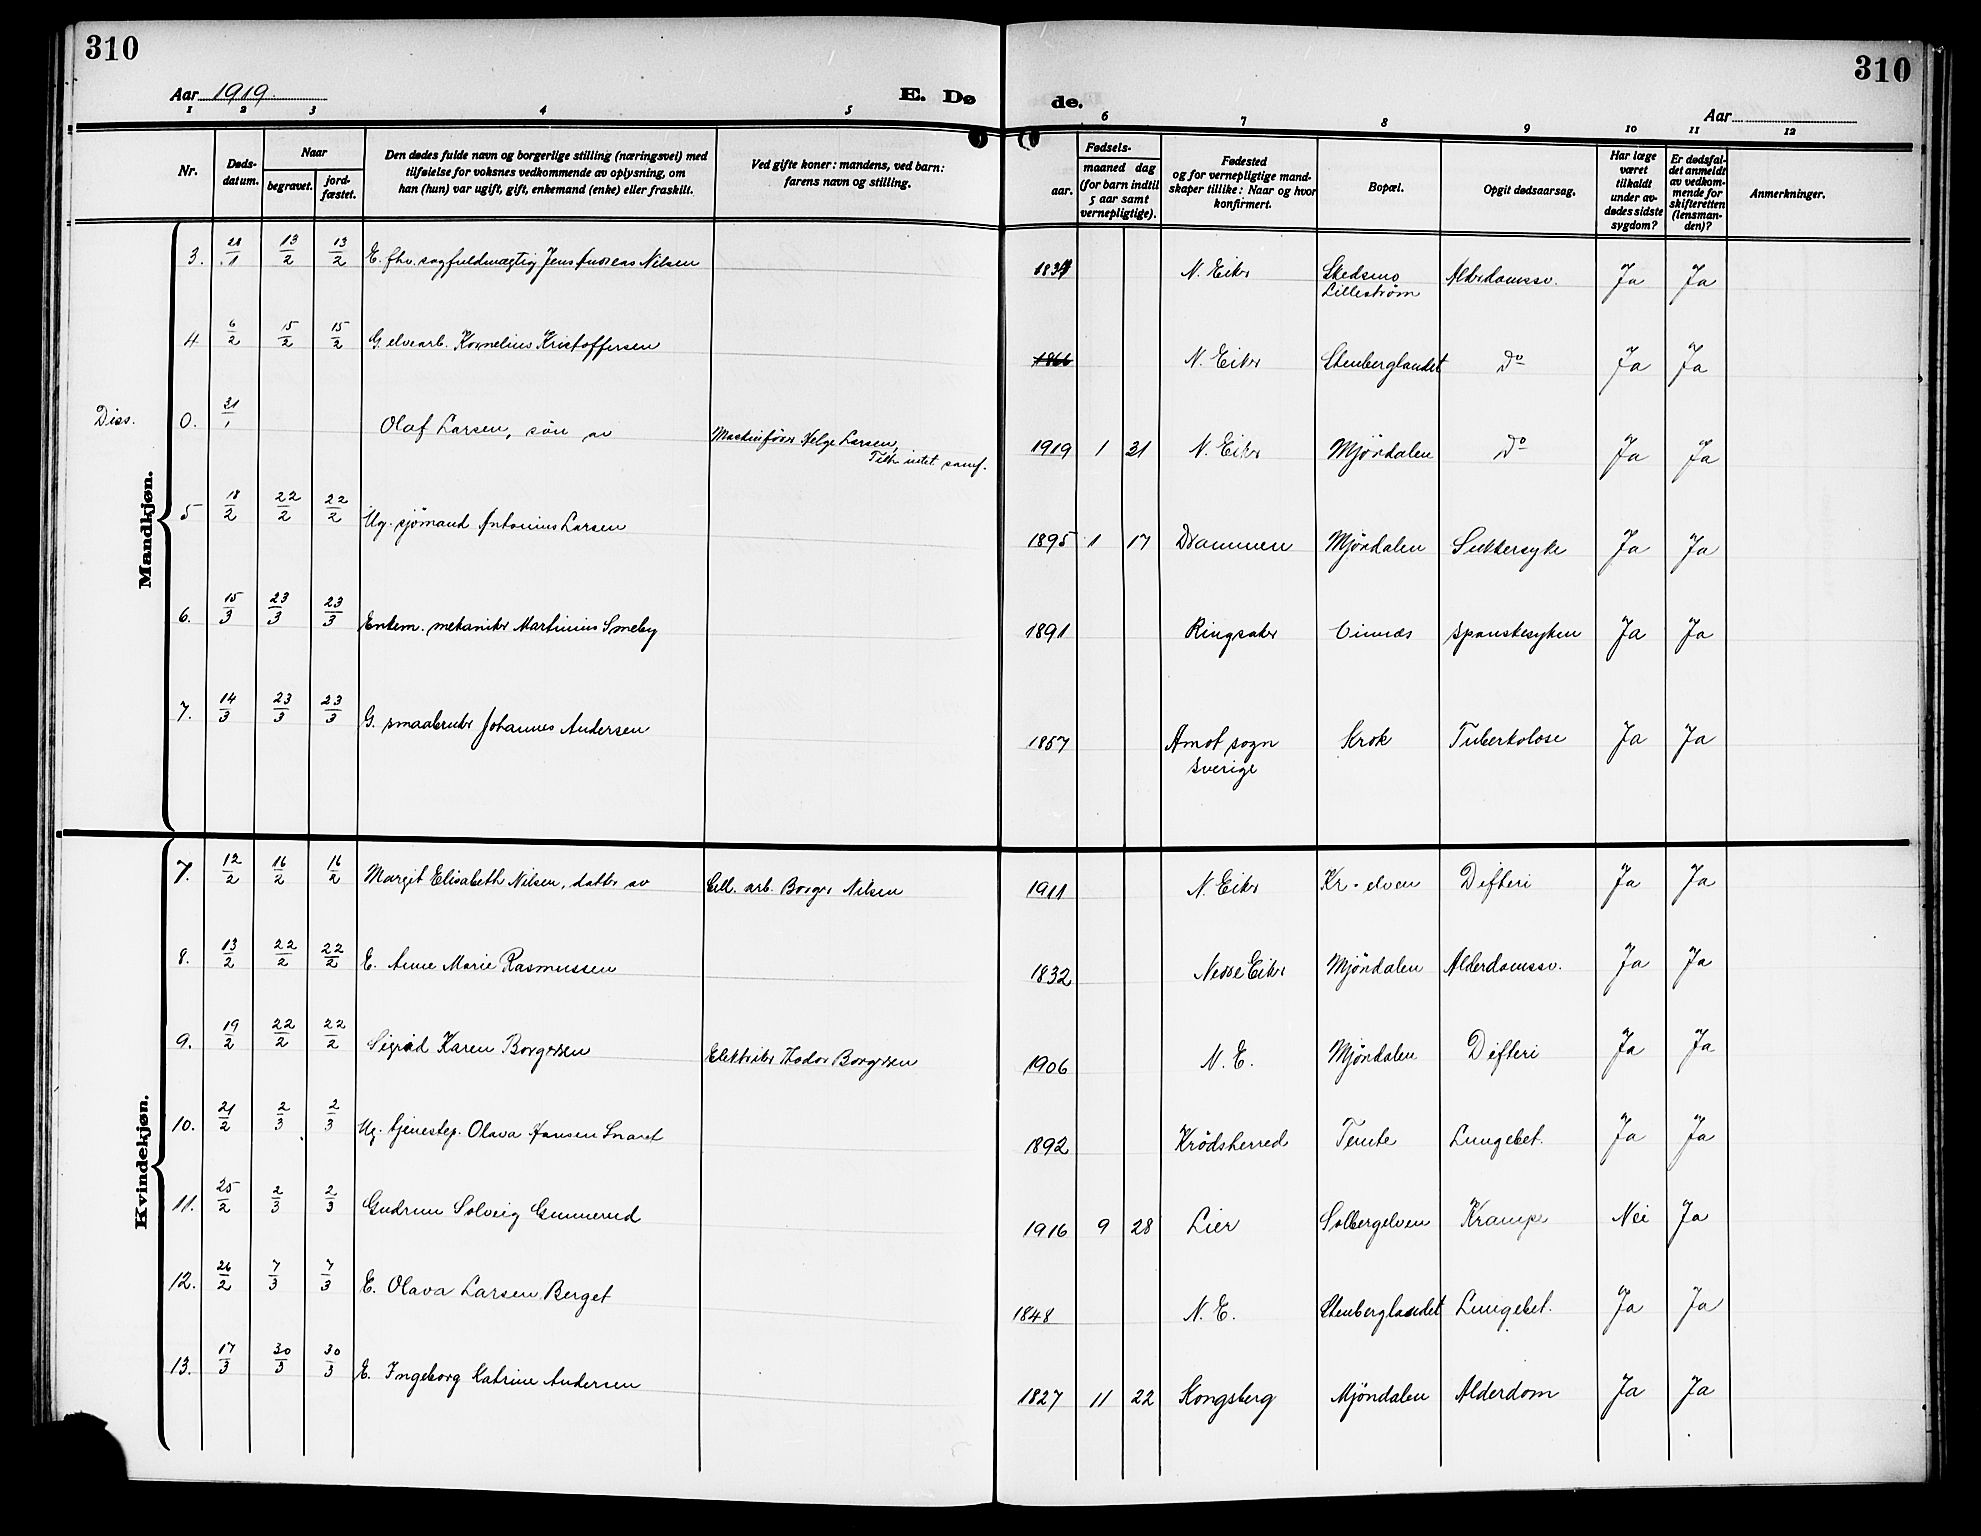 310
310
Aar 1919.
E. Dø
de.
Aar
1 2 3 4 5 6 7 8 9 10 11 12
Nr.
Døds-
datum.
Naar
begravet.
jord-
fæstet.
Den dødes fulde navn og borgerlige stilling (næringsvei) med
tilføielse for voksnes vedkommende av oplysning, om
han (hun) var ugift, gift, enkemand (enke) eller fraskilt.
Ved gifte koner: mandens, ved barn:
farens navn og stilling.
Fødsels-
aar.
maaned dag
(for barn indtil
5 aar samt
vernepligtige).
Fødested
og for vernepligtige mand-
skaper tillike: Naar og hvor
konfirmert.
Bopæl.
Opgit dødsaarsag.
Har læge
været
tilkaldt
under av-
dødes sidste
sygdom?
Er dødsfal-
det anmeldt
av vedkom-
mende for
skifteretten
(lensman-
den)?
Anmerkninger.
Mandkjøn.
3. 28/1 13/2 13/2 E. fhv. sagfuldmægtig Jens Andreas Nilsen 1834 N. Eiker Skedsmo Alderdomssv. Ja Ja
Lilleström
4 6/2 15/2 15/2 G. elvearb. Kornelius Kristoffersen 1866 N. Eiker Stenberglandet Do Ja Ja
Diss. 0. 31/1 Olaf Larsen, sön av Maskinförer Helge Larsen, 1919 1 31 N. Eiker Mjöndalen Do Ja Ja
Tilh intet samf.
5 18/2 22/2 22/2 Ug. sjömand Antonius Larsen 1895 1 17 Drammen Mjöndalen Sukkersyke Ja Ja
6. 15/3 23/3 23/3 Enkem. mekaniker Martinius Smeby 1891 Ringsaker Vinnæs Spanskesyken Ja Ja
7. 14/3 23/3 23/3 G. smaabruker Johannes Andersen 1857 Amot sogn Krok Tuberkolose Ja Ja
Sverige
Kvindekjøn.
7. 12/2 16/2 16/2 Margit Elisabeth Nilsen, datter av Cell. arb. Borger Nilsen 1911 N. Eiker Kr.elven Difteri Ja Ja
8. 13/2 22/2 22/2 E. Anne Marie Rasmussen 1832 Nedre Eiker Mjöndalen Alderdomssv. Ja Ja
9. 19/2 22/2 22/2 Sigrid Karen Borgersen Elektriker Thodor Borgersen 1906 N. E. Mjöndalen Difteri Ja Ja
10. 21/2 2/3 2/3 Ug. tjenestep. Olava Hansen Snaret 1892 Krödsherred Temte Lungebet. Ja Ja
11. 25/2 2/3 2/3 Gudrun Solveig Gunnerud 1916 9 28 Lier Solbergelven Krampe Nei Ja
12. 26/2 7/3 7/3 E. Olava Larsen Berget 1848 N. E. Stenberglandet Lungebet. Ja Ja
13. 17/3 30/3 30/3 E. Ingeborg Katrine Andersen 1827 11 22 Kongsberg Mjöndalen Alderdom Ja Ja